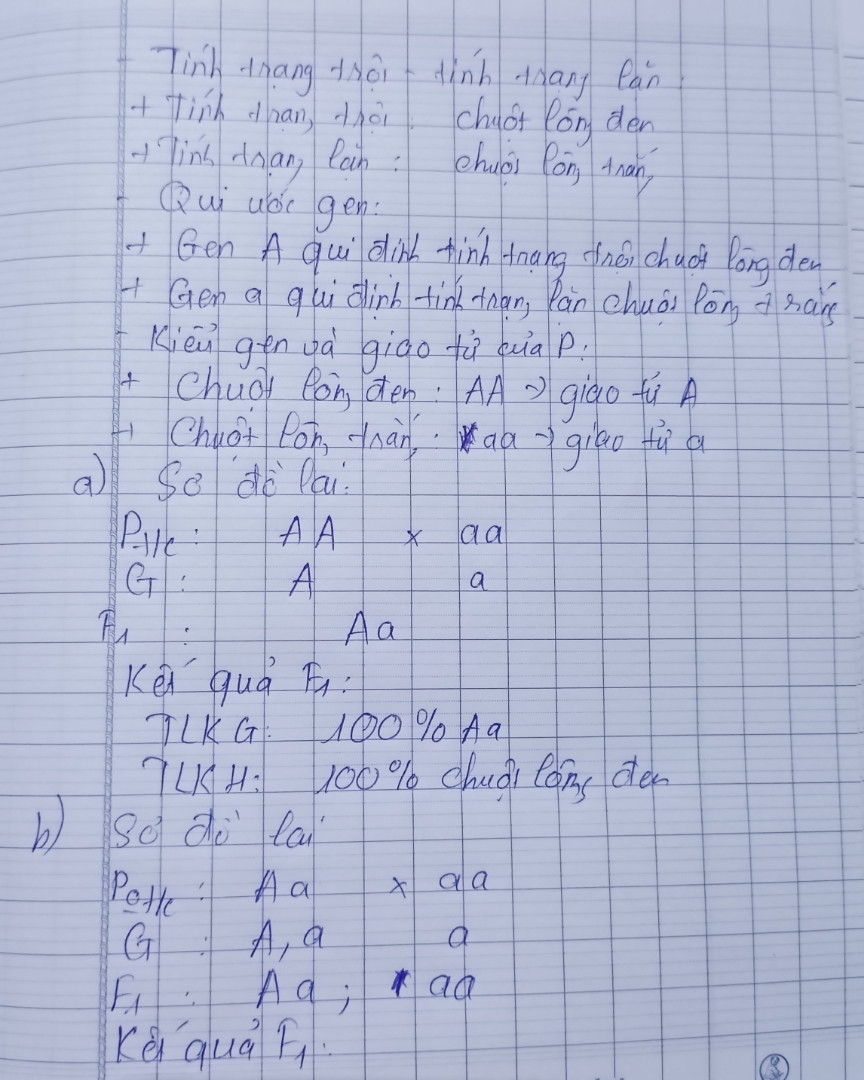 - Tính trạng trội - tính trạng lặn:
+ Tính trạng trội: chuột lông đen
+ Tính trạng lặn: chuột lông trắng
- Qui ước gen:
+ Gen A qui định tính trạng trội chuột lông đen
+ Gen a qui định tính trạng lặn chuột lông trắng
- Kiểu gen và giao tử của P:
+ Chuột lông đen: AA → giao tử A
+ Chuột lông trắng: aa → giao tử a
a) Sơ đồ lai:
Pt/c: AA x aa
G: A a
F1: Aa
Kết quả F1:
TLKG: 100% Aa
TLKH: 100% chuột lông đen
b) Sơ đồ lai
Aa x aa
G: A, a a
F1: Aa; aa
Kết quả F1: